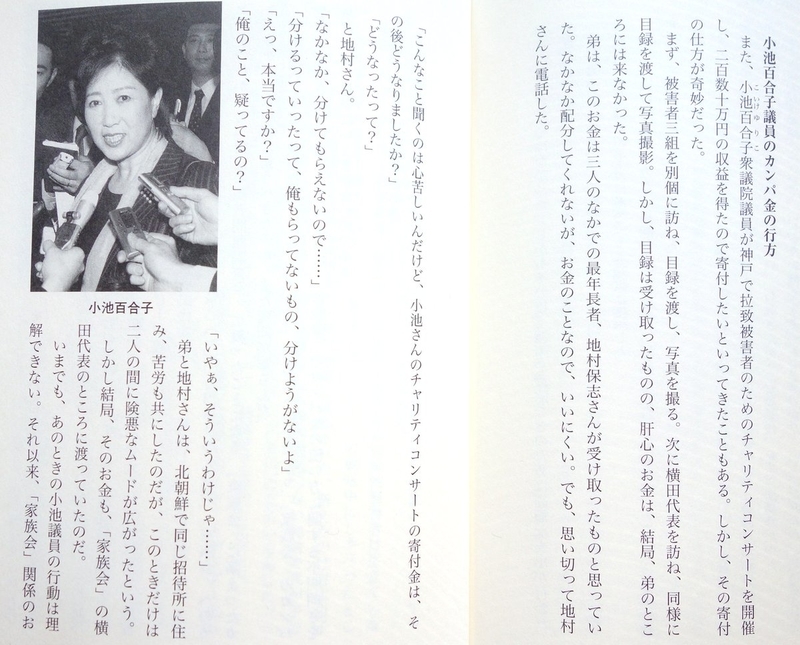 小池百合子議員のカンパ金の行方
また、小池百合子衆議院議員が神戸で拉致被害者のためのチャリティコンサートを開催
し、二百数十万円の収益を得たので寄付したいといってきたこともある。しかし、その寄付
の仕方が奇妙だった。
まず、被害者三組を別個に訪ね、目録を渡し、写真を撮る。次に横田代表を訪ね、同様に
目録を渡して写真撮影。しかし、目録は受け取ったものの、肝心のお金は、結局、弟のとこ
ろには来なかった。
弟は、このお金は三人のなかでの最年長者、地村保志さんが受け取ったものと思ってい
た。なかなか配分してくれないが、お金のことなので、いいにくい。でも、思い切って地村
さんに電話した。
「こんなこと聞くのは心苦しいんだけど、小池さんのチャリティコンサートの寄付金は、そ
の後どうなりましたか?」
「どうなったって?」
と地村さん。
「なかなか、分けてもらえないので……」
「分けるっていったって、俺もらってないもの、分けようがないよ」
「えっ、本当ですか?」
「俺のこと、疑ってるの?」
小池百合子
「いやぁ、そういうわけじゃ……」
弟と地村さんは、北朝鮮で同じ招待所に住
み、苦労も共にしたのだが、このときだけは
二人の間に険悪なムードが広がったという。
しかし結局、そのお金も、「家族会」の横
田代表のところに渡っていたのだ。
いまでも、あのときの小池議員の行動は理
解できない。それ以来、「家族会」関係のお